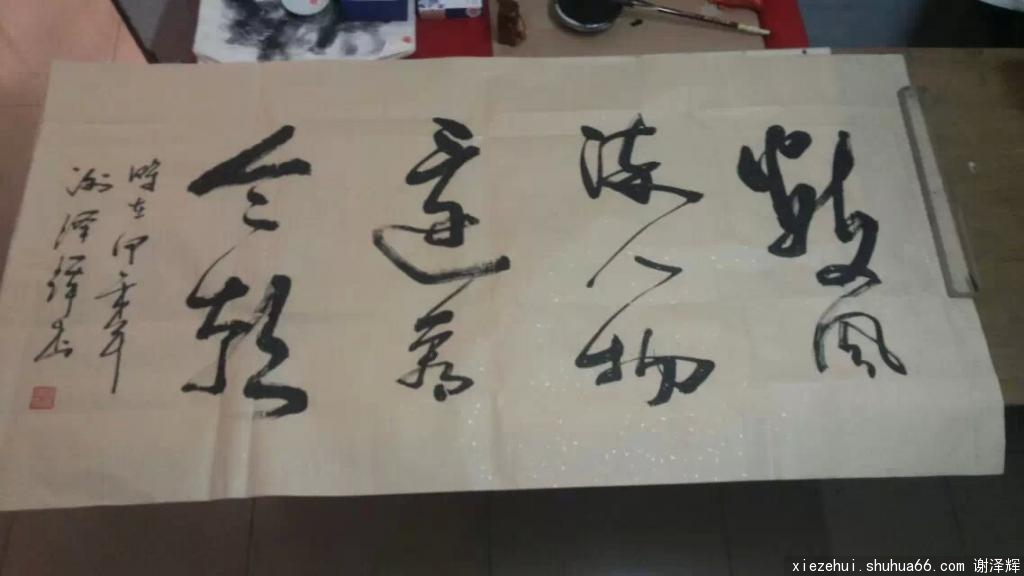 數風
流人物
還看
今朝
時在甲午年
谢泽辉书
xiezehui.shuhua66.com 谢泽辉